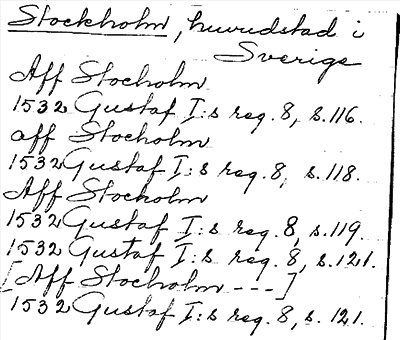 Stockholm, huvudstad i
Sverige
Aff Stocholm
1532 Gustaf I:s reg. 8, s. 116.
aff Stocholm
1532 Gustaf I:s reg. 8, s. 118.
Aff Stocholm
1532 Gustaf I:s reg. 8, s. 119.
1532 Gustaf I:s reg. 8, s. 121.
[Aff Stocholm ---]
1532 Gustaf I:s reg. 8, s. 121.